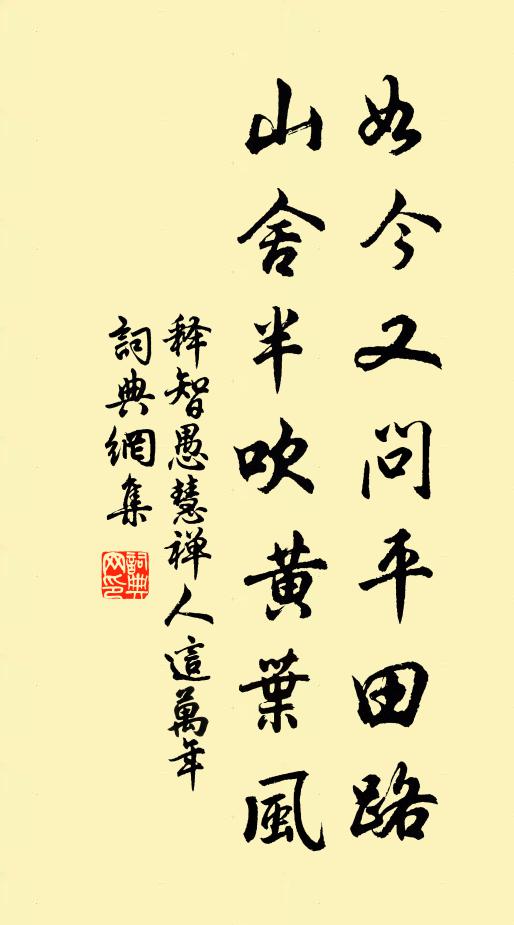 如今又問平田路
山舍半吹黃葉風
释智愚慧禅人這萬年
詞典網集
詞典网印